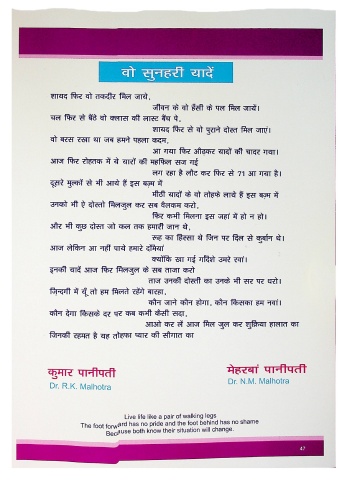 वो सुनहरी यादें
शायद फिर वो तकदीर मिल जाये,
जीवन के वो हँसी के पल मिल जायें।
चल फिर से बैठें वो क्लास की लास्ट बैंच पे,
शायद फिर से वो पुराने दोस्त मिल जाएं।
वो बरस रखा था जब हमने पहला कदम,
आ गया फिर ओढ़कर यादों की चादर गया।
आज फिर रोहतक में ये यारों की महफिल सज गई
लग रहा है लौट कर फिर से 71 आ गया है।
दूसरे मुल्कों से भी आये हैं इस बज़्म में
मीठी यादों के वो तोहफे लावे हैं इस बज़्म में
उनको भी ऐ दोस्तो मिलजुल कर सब वैलकम करो,
फिर कभी मिलना इस जहां में हो न हो।
और भी कुछ दोस्त जो कल तक हमारी जान थे,
रूह का हिस्सा थे जिन पर दिल से कुर्बान थे।
आज लेकिन आ नहीं पाये हमारे दर्मियां
क्योंकि खा गई गर्दिशे उमरे रवां।
इनकी यादें आज फिर मिलजुल के सब ताजा करो
ताज उनकी दोस्ती का उनके भी सर पर धरो।
ज़िन्दगी में यूँ तो हम मिलते रहेंगे बारहा,
कौन जाने कौन होगा, कौन किसका हम नवां।
कौन देगा किसके दर पर कब कभी कैसी सदा,
आओ कर लें आज मिल जुल कर शुक्रिया हालात का
जिनकी रहमत है यह तोहफा प्यार की सौगात का
कुमार पानीपती
मेहरबां पानीपती
Dr. R.K. Malhotra
Dr. N.M. Malhotra
Live life like a pair of walking legs
The foot forward has no pride and the foot behind has no shame
Because both know their situation will change.
47